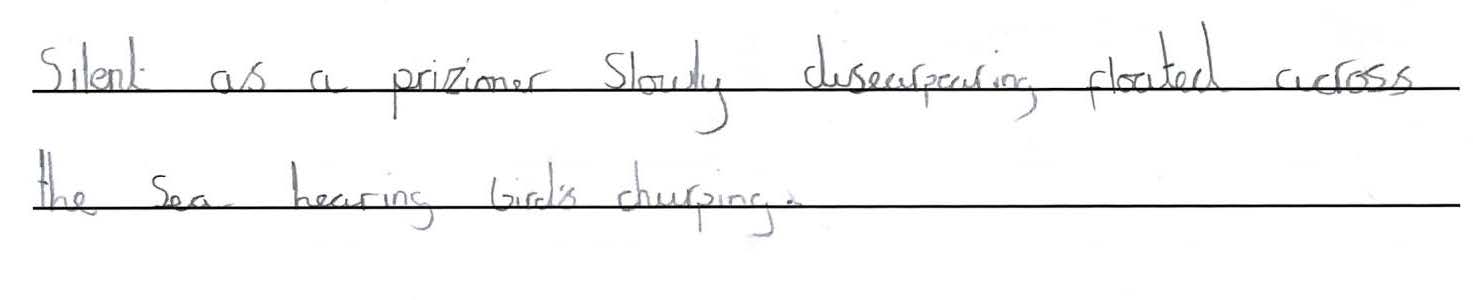 Silent as a prizioner Slowly disearpearing floated across
the Sea hearing bird's churping.